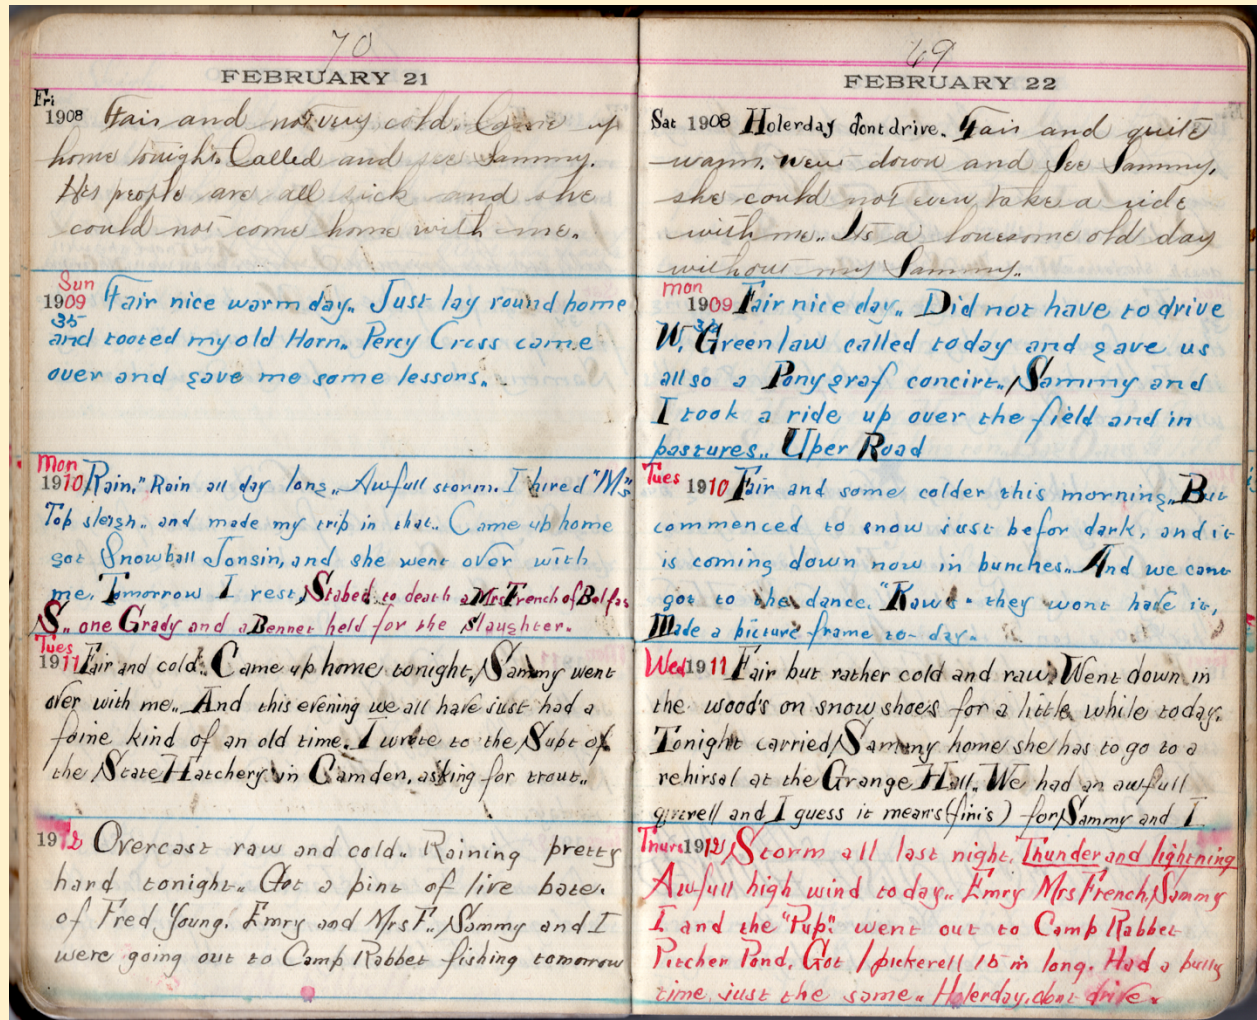 70
FEBRUARY 21
Fri
1908 Fair and not very cold. Came up
home tonight. Called and see Sammy.
Her people are all sick and she
could not come home with me.
Sun
1909 Fair nice warm day.. Just lay round home
35
and tooted my old Horn.. Percy Cross came
over and gave me some lessons..
Mon
1910 Rain." Rain all day long.. Awfull storm. I hired "Ms"
Top sleigh.. and made my trip in that.. Came up home
got Snowball Jonsin, and she went over with
me. Tomorrow I rest, Stabed to death a Mrs French of Belfas
S.. one Grady and a Bennet held for the slaughter.
Tues
1911 Fair and cold.. Came up home tonight, Sammy went
over with me.. And this evening we all have just had a
foine kind of an old time. I wrote to the Supt of
the State Hatchery in Camden, asking for trout..
1912 Overcast raw and cold.. Raining pretty
hard tonight.. Got a pint of live bate.
of Fred Young. Emry and Mrs F.. Sammy and I
were going out to Camp Rabbet fishing tomorrow
69
FEBRUARY 22
Sat 1908 Holerday dont drive. Fair and quite
warm. Went down and See Sammy,
she could not even take a ride
with me.. Its a lonesome old day
without my Sammy..
mon
1909 Fair nice day.. Did not have to drive
W. Greenlaw called today and gave us
allso a Ponygraf concirt.. Sammy and
I took a ride up over the field and in
pastures.. Uper Road
Tues 1910 Fair and some colder this morning.. But
commenced to snow just befor dark, and it
is coming down now in bunches.. And we cant
got to the dance. "Raws" they wont have it,
Made a picture frame to-day.
Wed 1911 Fair but rather cold and raw. Went down in
the wood's on snow shoe's for a little while today.
Tonight carried Sammy home she has to go to a
rehirsal at the Grange Hall. We had an awfull
qurrell and I guess it mean's (fini's) for Sammy and I.
Thurs 1912 Storm all last night. Thunder and lightning
Awfull high wind today.. Emry Mrs French, Sammy
I and the "Pup". went out to Camp Rabbet
Pitcher Pond. Got 1 pickerell 15 in long. Had a bully
time just the same.. Holerday, dont drive.